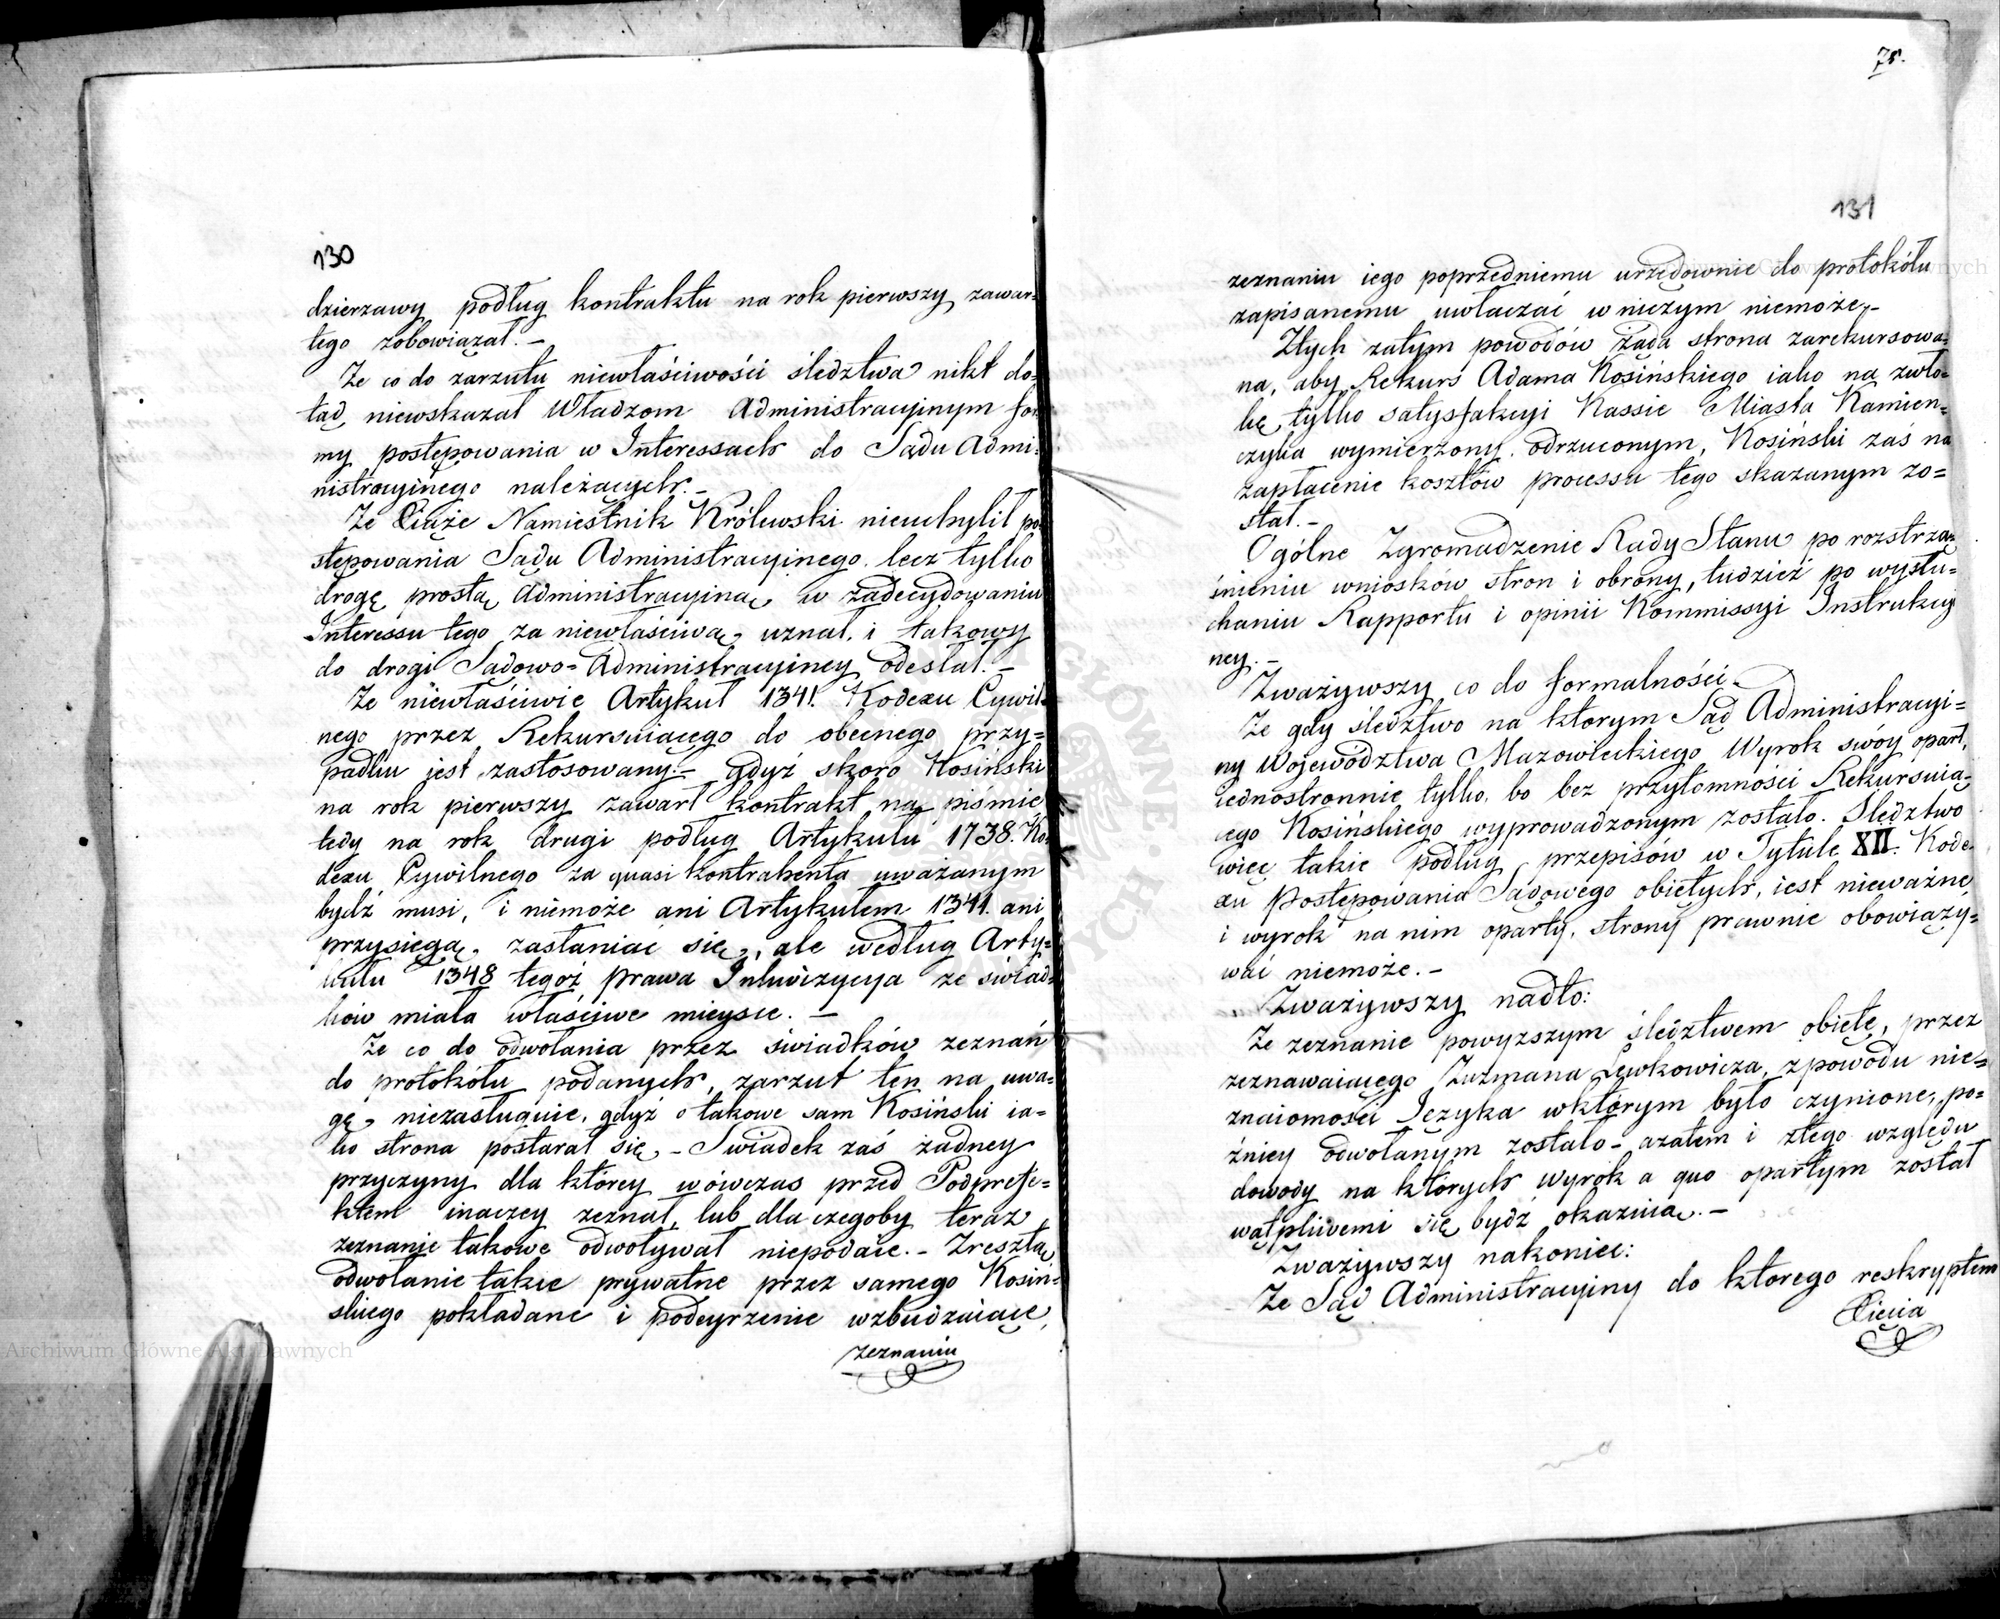 130
dzierzawy podług kontraktu na rok pierwszy zawar=
tego zobowiązał. –
Ze co do zarzutu niewłaściwości śledztwa nikt do=
tąd niewskazał Władzom Administracyinym for
my postępowania w Interessach do Sądu Admi=
nistracyinego należących. –
Ze Xiąże Namiestnik Królewski nieuchylił po
stępowania Sądu Administracyinego lecz tylko
drogę prostą Administracyiną w zadecydowaniu
Interessu tego za niewłaściwą uznał, i takowy
do drogi Sądowo=Administracyiney odesłał. –
Ze niewłaściwie Artykuł 1341. Kodexu Cywil=
nego przez Rekursuiącego do obecnego przy=
padku jest zastosowany – gdyż skoro Kosiński
na rok pierwszy zawarł kontrakt na piśmie
tedy na rok drugi podług Artykułu 1738. Ko=
dexu Cywilnego za quasi kontrahenta uważanym
bydź musi, i niemoże ani Artykułem 1341. ani
przysięgą zasłaniać się, ale według Arty=
kułu 1348 tegoż prawa Inkwizycya ze świad=
ków miała właściwe mieysce. –
Ze co do odwołania przez świadków zeznań
do protokółu podanych, zarzut ten na uwa=
gę niezasługuie, gdyż o takowe sam Kosiński ia=
ko strona postarał się – Swiadek zaś żadney
przyczyny dla którey wówczas przed Podprefe=
ktem inaczey zeznał, lub dla czegoby teraz
zeznanie takowe odwoływał niepodaie. – Zresztą
odwołanie takie prywatne przez samego Kosiń=
skiego pokładane i podeyrzenie wzbudzaiące,
zeznaniu
75.
131
zeznaniu iego poprzedniemu urzędownie do protokółu
zapisanemu uwłaczać w niczym niemoże. –
Ztych zatym powodów żąda strona zarekursowa=
na, aby Rekurs Adama Kosińskiego iako na zwło=
kę tylko satysfakcyi Kassie Miasta Kamień=
czyka wymierzony odrzuconym, Kosiński zaś na
zapłacenie kosztów processu tego skazanym zo=
stał. –
Ogólne Zgromadzenie Rady Stanu po rozstrzą=
śnieniu wniosków stron i obrony, tudzież po wysłu=
chaniu Rapportu i opinii Kommissyi Instrukcyi
ney. –
Zważywszy co do formalności.
Ze gdy śledztwo na którym Sąd Administracyi=
ny Województwa Mazowieckiego Wyrok swóy oparł,
iednostronnie tylko, bo bez przytomności Rekursuią=
cego Kosińskiego wyprowadzonym zostało. Sledztwo
więc takie podług przepisów w Tytule XII. Kode=
xu Postępowania Sądowego obiętych, iest nieważne
i wyrok na nim oparty, strony prawnie obowiązy=
wać niemoże. –
Zważywszy nadto:
Ze zeznanie powyższym śledztwem obięte, przez
zeznawaiącego Zuzmana Lewkowicza, z powodu nie=
znaiomości Języka w którym było czynione, po=
źniey odwołanym zostało – azatem i ztego względu
dowody na których wyrok a quo opartym został
wątpliwemi się bydź okazuią. –
Zważywszy nakoniec:
Ze Sąd Administracyiny do którego reskryptem
Xięcia
Archiwum Główne Akt Dawnych